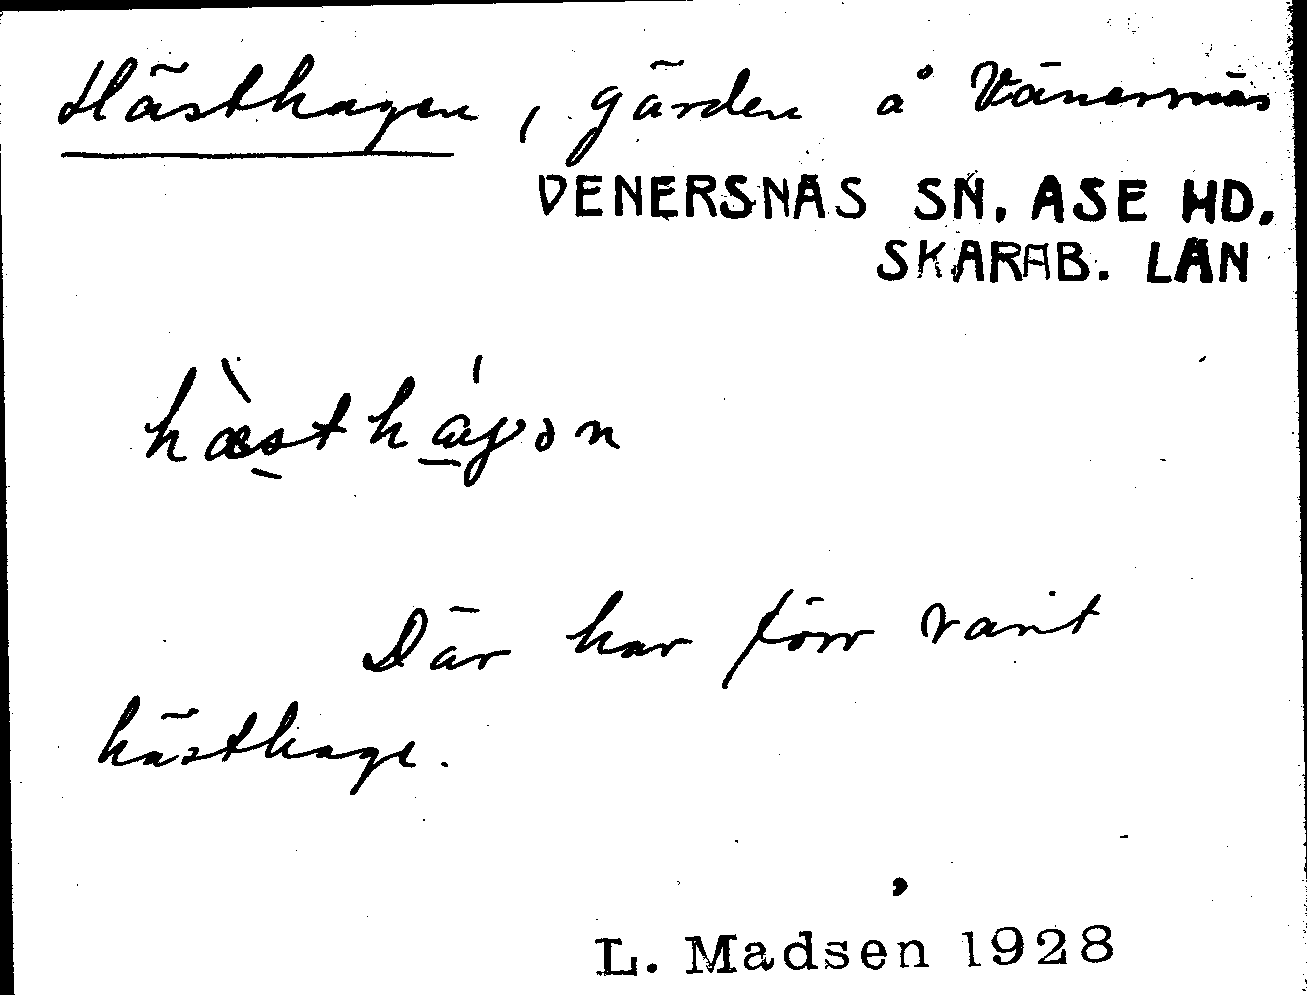 Hästhagen, gärden å Vänernäs
VENERSNÄS SN. ÅSE HD.
SKARAB. LÄN
hæ̀sthágən
Där har förr varit
hästhage.
L. Madsen 1928